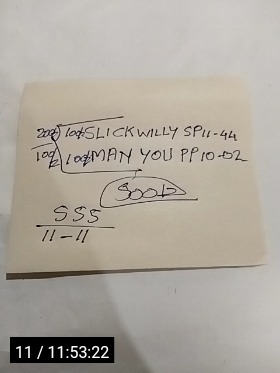 200/- 100/- SLICKWILLY SP11-44
100/- 100/- MAN YOU PP10-02
SSS
11-11
11 / 11:53:22